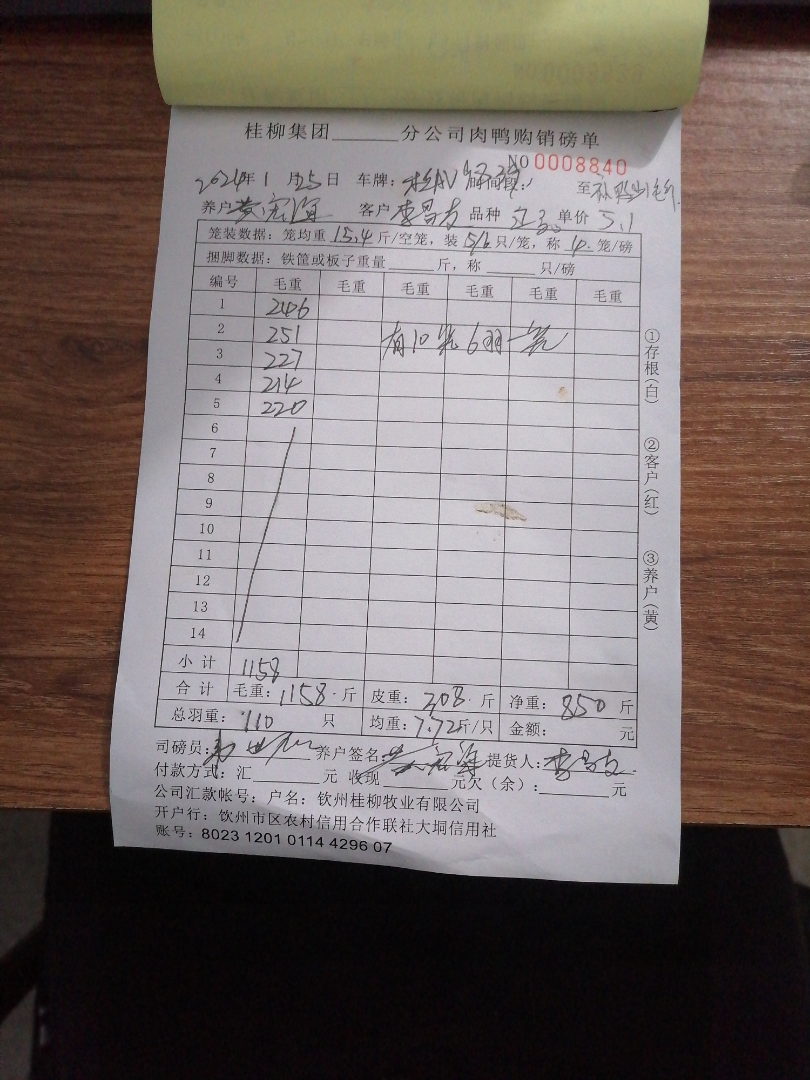 桂柳集团______分公司肉鸭购销磅单
NO 0008840
2024年1月25日 车牌: 至
养户 黄 客户 李 品种 单价 5.1
笼装数据: 笼均重 15.4 斤/空笼, 装 5/6 只/笼, 称 4 笼/磅
捆脚数据: 铁筐或板子重量______斤, 称______只/磅
编号 毛重 毛重 毛重 毛重 毛重 毛重
1 246
2 251 有10笼6羽一笼
3 227
4 214
5 220
6
7
8
9
10
11
12
13
14
小计 1158
合计 毛重: 1158 斤 皮重: 308 斤 净重: 850 斤
总羽重: 110 只 均重: 7.72斤/只 金额: 元
司磅员: 养户签名: 黄 提货人: 李
付款方式: 汇______元 收现______元欠(余): ______元
公司汇款帐号: 户名: 钦州桂柳牧业有限公司
开户行: 钦州市区农村信用合作联社大垌信用社
账号: 8023 1201 0114 4296 07
①存根(白)
②客户(红)
③养户(黄)